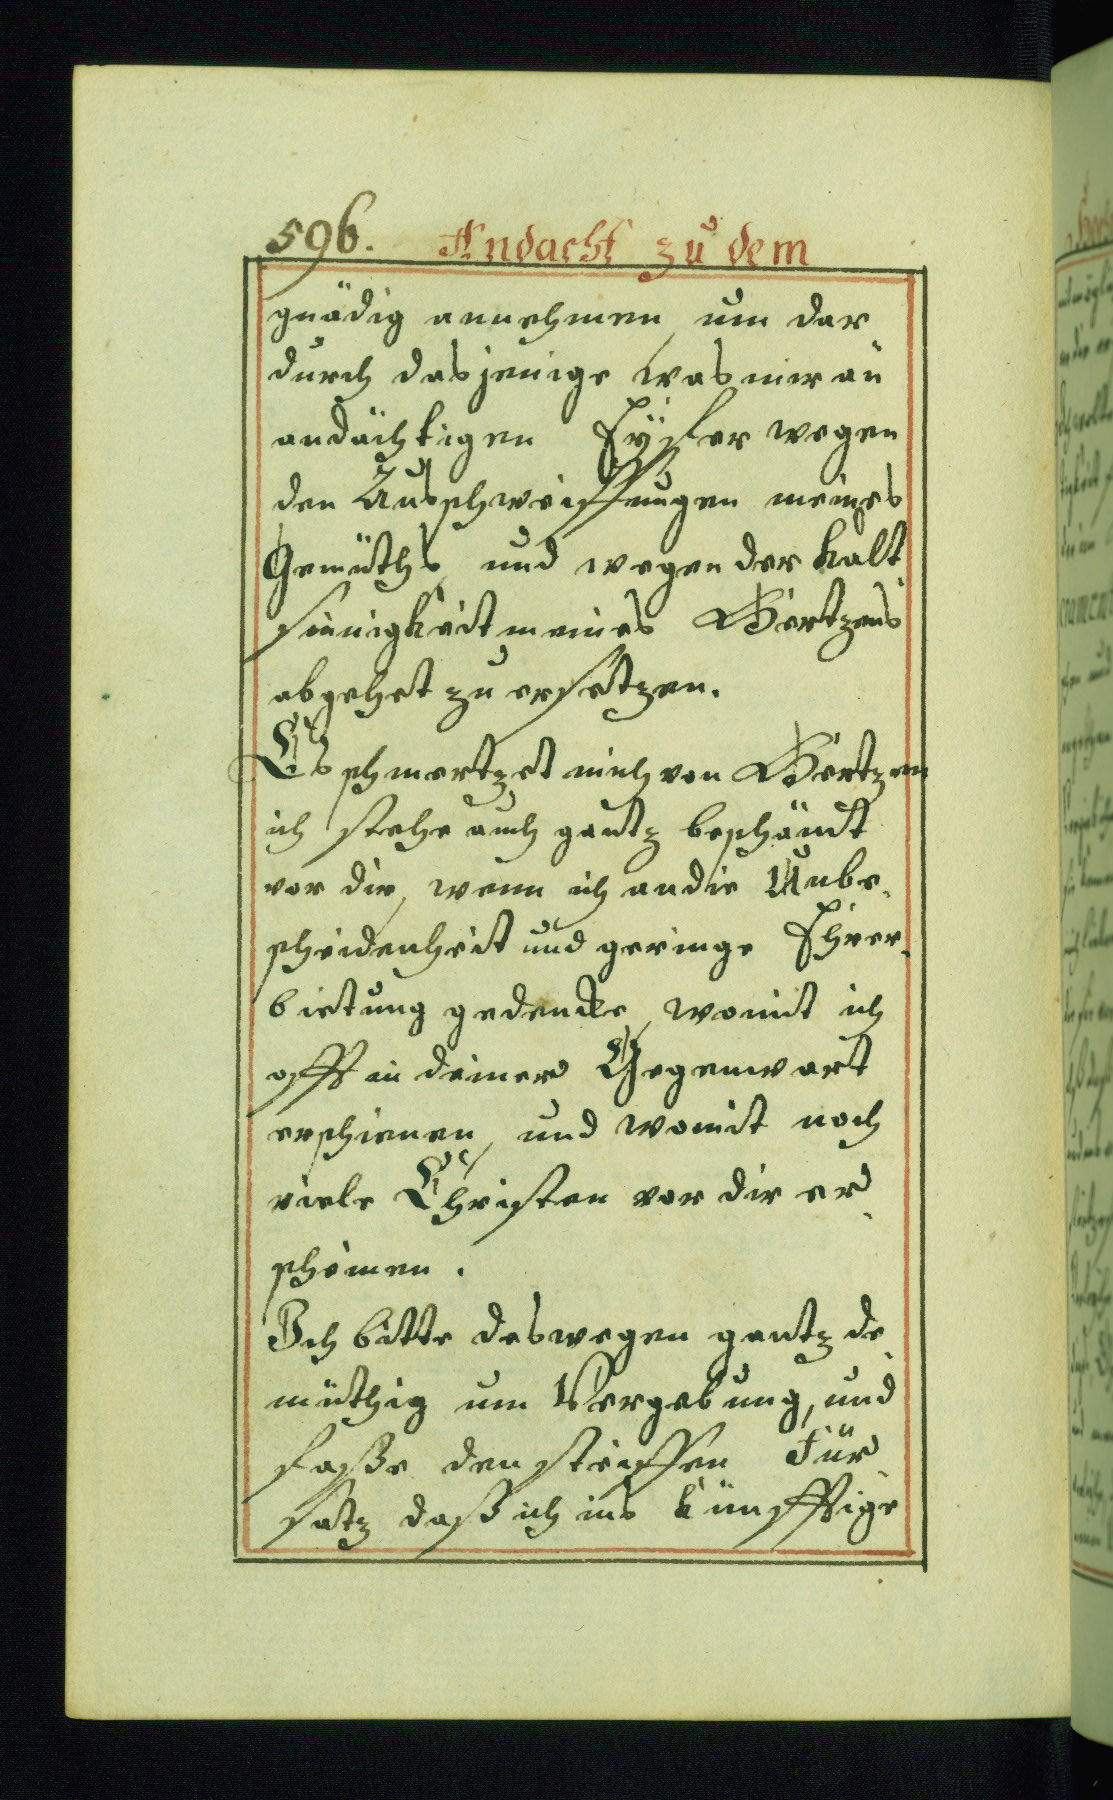 596. Andacht zu dem
gnädig annehmen, um dar
durch dasjenige was mir an
andächtigen Eÿfer wegen
den Ausschweiffungen meines
Gemüths, und wegen der Kalt
sinnigkeit meines Hertzens
abgehet zu ersetzen.
Es schmertzet mich von Hertzen
ich stehe auch gantz beschämt
vor dir, wenn ich an die Unbe-
scheidenheit und geringe Ehrer-
bietung gedencke, womit ich
offt in deiner Gegenwart
erschienen, und womit noch
viele Christen vor dir er-
scheinen.
Ich bitte deswegen gantz de
müthig um Vergebung, und
fasse den steiffen Für
satz daß ich ins künfftige